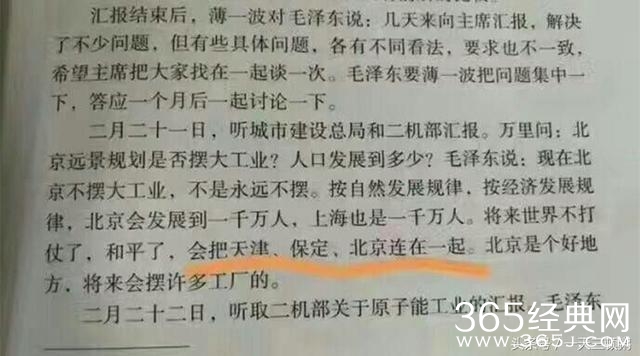 汇报结束后，薄一波对毛泽东说：几天来向主席汇报，解决
了不少问题，但有些具体问题，各有不同看法，要求也不一致，
希望主席把大家找在一起谈一次。毛泽东要薄一波把问题集中一
下，答应一个月后一起讨论一下。
二月二十一日，听城市建设总局和二机部汇报。万里问：北
京远景规划是否摆大工业？人口发展到多少？毛泽东说：现在北
京不摆大工业，不是永远不摆。按自然发展规律，按经济发展规
律，北京会发展到一千万人，上海也是一千万人。将来世界不打
仗了，和平了，会把天津、保定、北京连在一起。北京是个好地
方，将来会摆许多工厂的。
二月二十二日，听取二机部关于原子能工业的汇报，毛泽东
365经典网
365JZ.COM